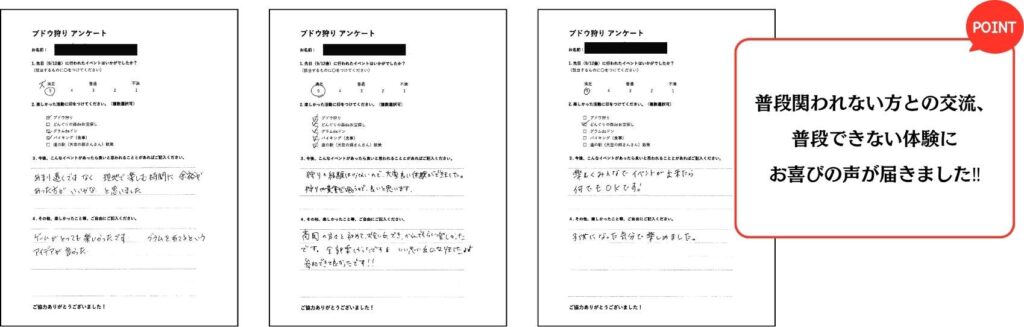 ブドウ狩り アンケート
お名前：
1. 先日（9/12㊎）に行われたイベントはいかがでしたか？
（該当するものに○をつけてください）
満足 普通 不満
5 4 3 2 1
2. 楽しかった活動に☑をつけてください。（複数選択可）
ブドウ狩り
どんぐりの森de お宝探し
グラムdeドン
バイキング（食事）
3. 今後、こんなイベントがあったら良いと思われることがあればご記入ください。
あまり遠くではなく 現地で楽しむ時間に余裕が
あった方が いいかな と思いました
4. その他、楽しかったこと等、ご自由にご記入ください。
ゲームがとっても楽しかったです グラムをあてるという
アイデアが良かった
ご協力ありがとうございました！
ブドウ狩り アンケート
お名前：
1. 先日（9/12㊎）に行われたイベントはいかがでしたか？
（該当するものに○をつけてください）
満足 普通 不満
5 4 3 2 1
2. 楽しかった活動に☑をつけてください。（複数選択可）
ブドウ狩り
どんぐりの森de お宝探し
グラムdeドン
バイキング（食事）
3. 今後、こんなイベントがあったら良いと思われることがあればご記入ください。
狩りの経験は少ないので、大変良い体験ができました。
4. その他、楽しかったこと等、ご自由にご記入ください。
ご協力ありがとうございました！
ブドウ狩り アンケート
お名前：
1. 先日（9/12㊎）に行われたイベントはいかがでしたか？
（該当するものに○をつけてください）
満足 普通 不満
5 4 3 2 1
2. 楽しかった活動に☑をつけてください。（複数選択可）
ブドウ狩り
どんぐりの森de お宝探し
グラムdeドン
バイキング（食事）
3. 今後、こんなイベントがあったら良いと思われることがあればご記入ください。
楽しくみんなで イベントが出来たら
何でもOKです！
4. その他、楽しかったこと等、ご自由にご記入ください。
子供になった気分で楽しめました。
ご協力ありがとうございました！
POINT
普段関われない方との交流、
普段できない体験に
お喜びの声が届きました!!